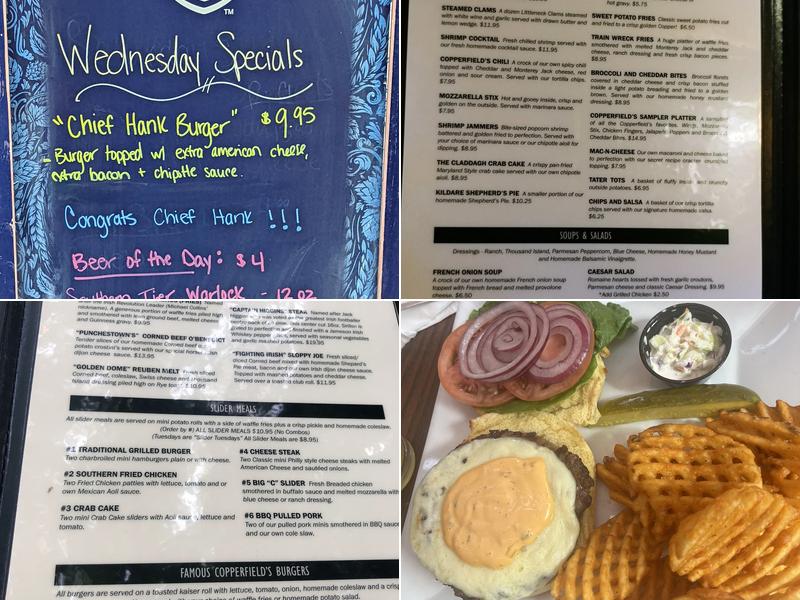 TM
Wednesday Specials
"Chief Hank Burger" $9.95
- Burger topped w/ extra american cheese,
extra bacon + chipotle sauce.
Congrats Chief Hank !!!
Beer of the Day: $4
Southern Tier Warlock - 12 oz
hot gravy. $5.75
STEAMED CLAMS A dozen Littleneck Clams steamed
with white wine and garlic served with drawn butter and
lemon wedge. $11.95
SHRIMP COCKTAIL Fresh chilled shrimp served with
our fresh homemade cocktail sauce. $11.95
COPPERFIELD'S CHILI A crock of our own spicy chili
topped with Cheddar and Monterey Jack cheese, red
onion and sour cream. Served with our tortilla chips.
$7.95
MOZZARELLA STIX Hot and gooey inside, crisp and
golden on the outside. Served with marinara sauce.
$7.95
SHRIMP JAMMERS Bite-sized popcorn shrimp
battered and golden fried to perfection. Served with
your choice of marinara sauce or our chipotle aioli for
dipping. $8.95
THE CLADDAGH CRAB CAKE A crispy pan-fried
Maryland Style crab cake served with our own chipotle
aioli. $8.95
KILDARE SHEPHERD'S PIE A smaller portion of our
homemade Shepherd's Pie. $10.25
SWEET POTATO FRIES Classic sweet potato fries cut
and fried to a crisp golden Copper! $6.50
TRAIN WRECK FRIES A huge platter of waffle fries
smothered with melted Monterey Jack and cheddar
cheese, ranch dressing and fresh crisp bacon pieces.
$8.95
BROCCOLI AND CHEDDAR BITES Broccoli florets
covered in cheddar cheese and crisp bacon stuffed
inside a light potato breading and fried to a golden
brown. Served with our homemade honey mustard
dressing. $8.95
COPPERFIELD'S SAMPLER PLATTER A sampling
of all the Copperfield's favorites. Wings, Mozzarella
Stix, Chicken Fingers, Jalapeño Poppers and Broccoli &
Cheddar Bites. $14.95
MAC-N-CHEESE Our own macaroni and cheese baked
to perfection with our secret recipe cracker crumb
topping. $7.95
TATER TOTS A basket of fluffy inside and crunchy
outside potatoes. $6.95
CHIPS AND SALSA A basket of our crisp tortilla
chips served with our signature homemade salsa.
$6.25
SOUPS & SALADS
Dressings - Ranch, Thousand Island, Parmesan Peppercorn, Blue Cheese, Homemade Honey Mustard
and Homemade Balsamic Vinaigrette.
FRENCH ONION SOUP
A crock of our own homemade French onion soup
topped with French bread and melted provolone
cheese. $6.50
CAESAR SALAD
Romaine hearts tossed with fresh garlic croutons,
Parmesan cheese and classic Caesar Dressing. $9.95
*Add Grilled Chicken $2.50
after the Irish Revolution Leader (Michael Collins'
nickname). A generous portion of waffle fries piled high
and smothered with lean ground beef, melted cheese
and Guinness gravy. $9.95
"PUNCHESTOWN'S" CORNED BEEF O'BENEDICT
Tender slices of our homemade corned beef
potato crostini's served with our special homemade Irish
dijon cheese sauce. $13.95
"GOLDEN DOME" REUBEN MELT Fresh sliced
Corned Beef, coleslaw, Swiss cheese and thousand
Island dressing piled high on Rye toast. $10.95
"CAPTAIN HIGGINS" STEAK Named after Jack
$19.95
"FIGHTING IRISH" SLOPPY JOE Fresh sliced/
diced Corned Beef mixed with homemade Shepard's
Pie meat, bacon and our own Irish dijon cheese sauce.
Topped with mashed potatoes and cheddar cheese.
Served over a toasted club roll. $11.95
SLIDER MEALS
All slider meals are served on mini potato rolls with a side of waffle fries plus a crisp pickle and homemade coleslaw.
(Order by #) ALL SLIDER MEALS $10.95 (No Combos)
(Tuesdays are "Slider Tuesdays" All Slider Meals are $8.95)
#1 TRADITIONAL GRILLED BURGER
Two charbroiled mini hamburgers plain or with cheese.
#2 SOUTHERN FRIED CHICKEN
Two Fried Chicken patties with lettuce, tomato and or
own Mexican Aoli sauce.
#3 CRAB CAKE
Two mini Crab Cake sliders with Aoli sauce, lettuce and
tomato.
#4 CHEESE STEAK
Two Classic mini Philly style cheese steaks with melted
American Cheese and sautéed onions.
#5 BIG "C" SLIDER Fresh Breaded chicken
smothered in buffalo sauce and melted mozzarella with
blue cheese or ranch dressing.
#6 BBQ PULLED PORK
Two of our pulled pork minis smothered in BBQ sauce
and our own cole slaw.
FAMOUS COPPERFIELD'S BURGERS
All burgers are served on a toasted kaiser roll with lettuce, tomato, onion, homemade coleslaw and a crisp
choice of waffle fries or homemade potato salad.